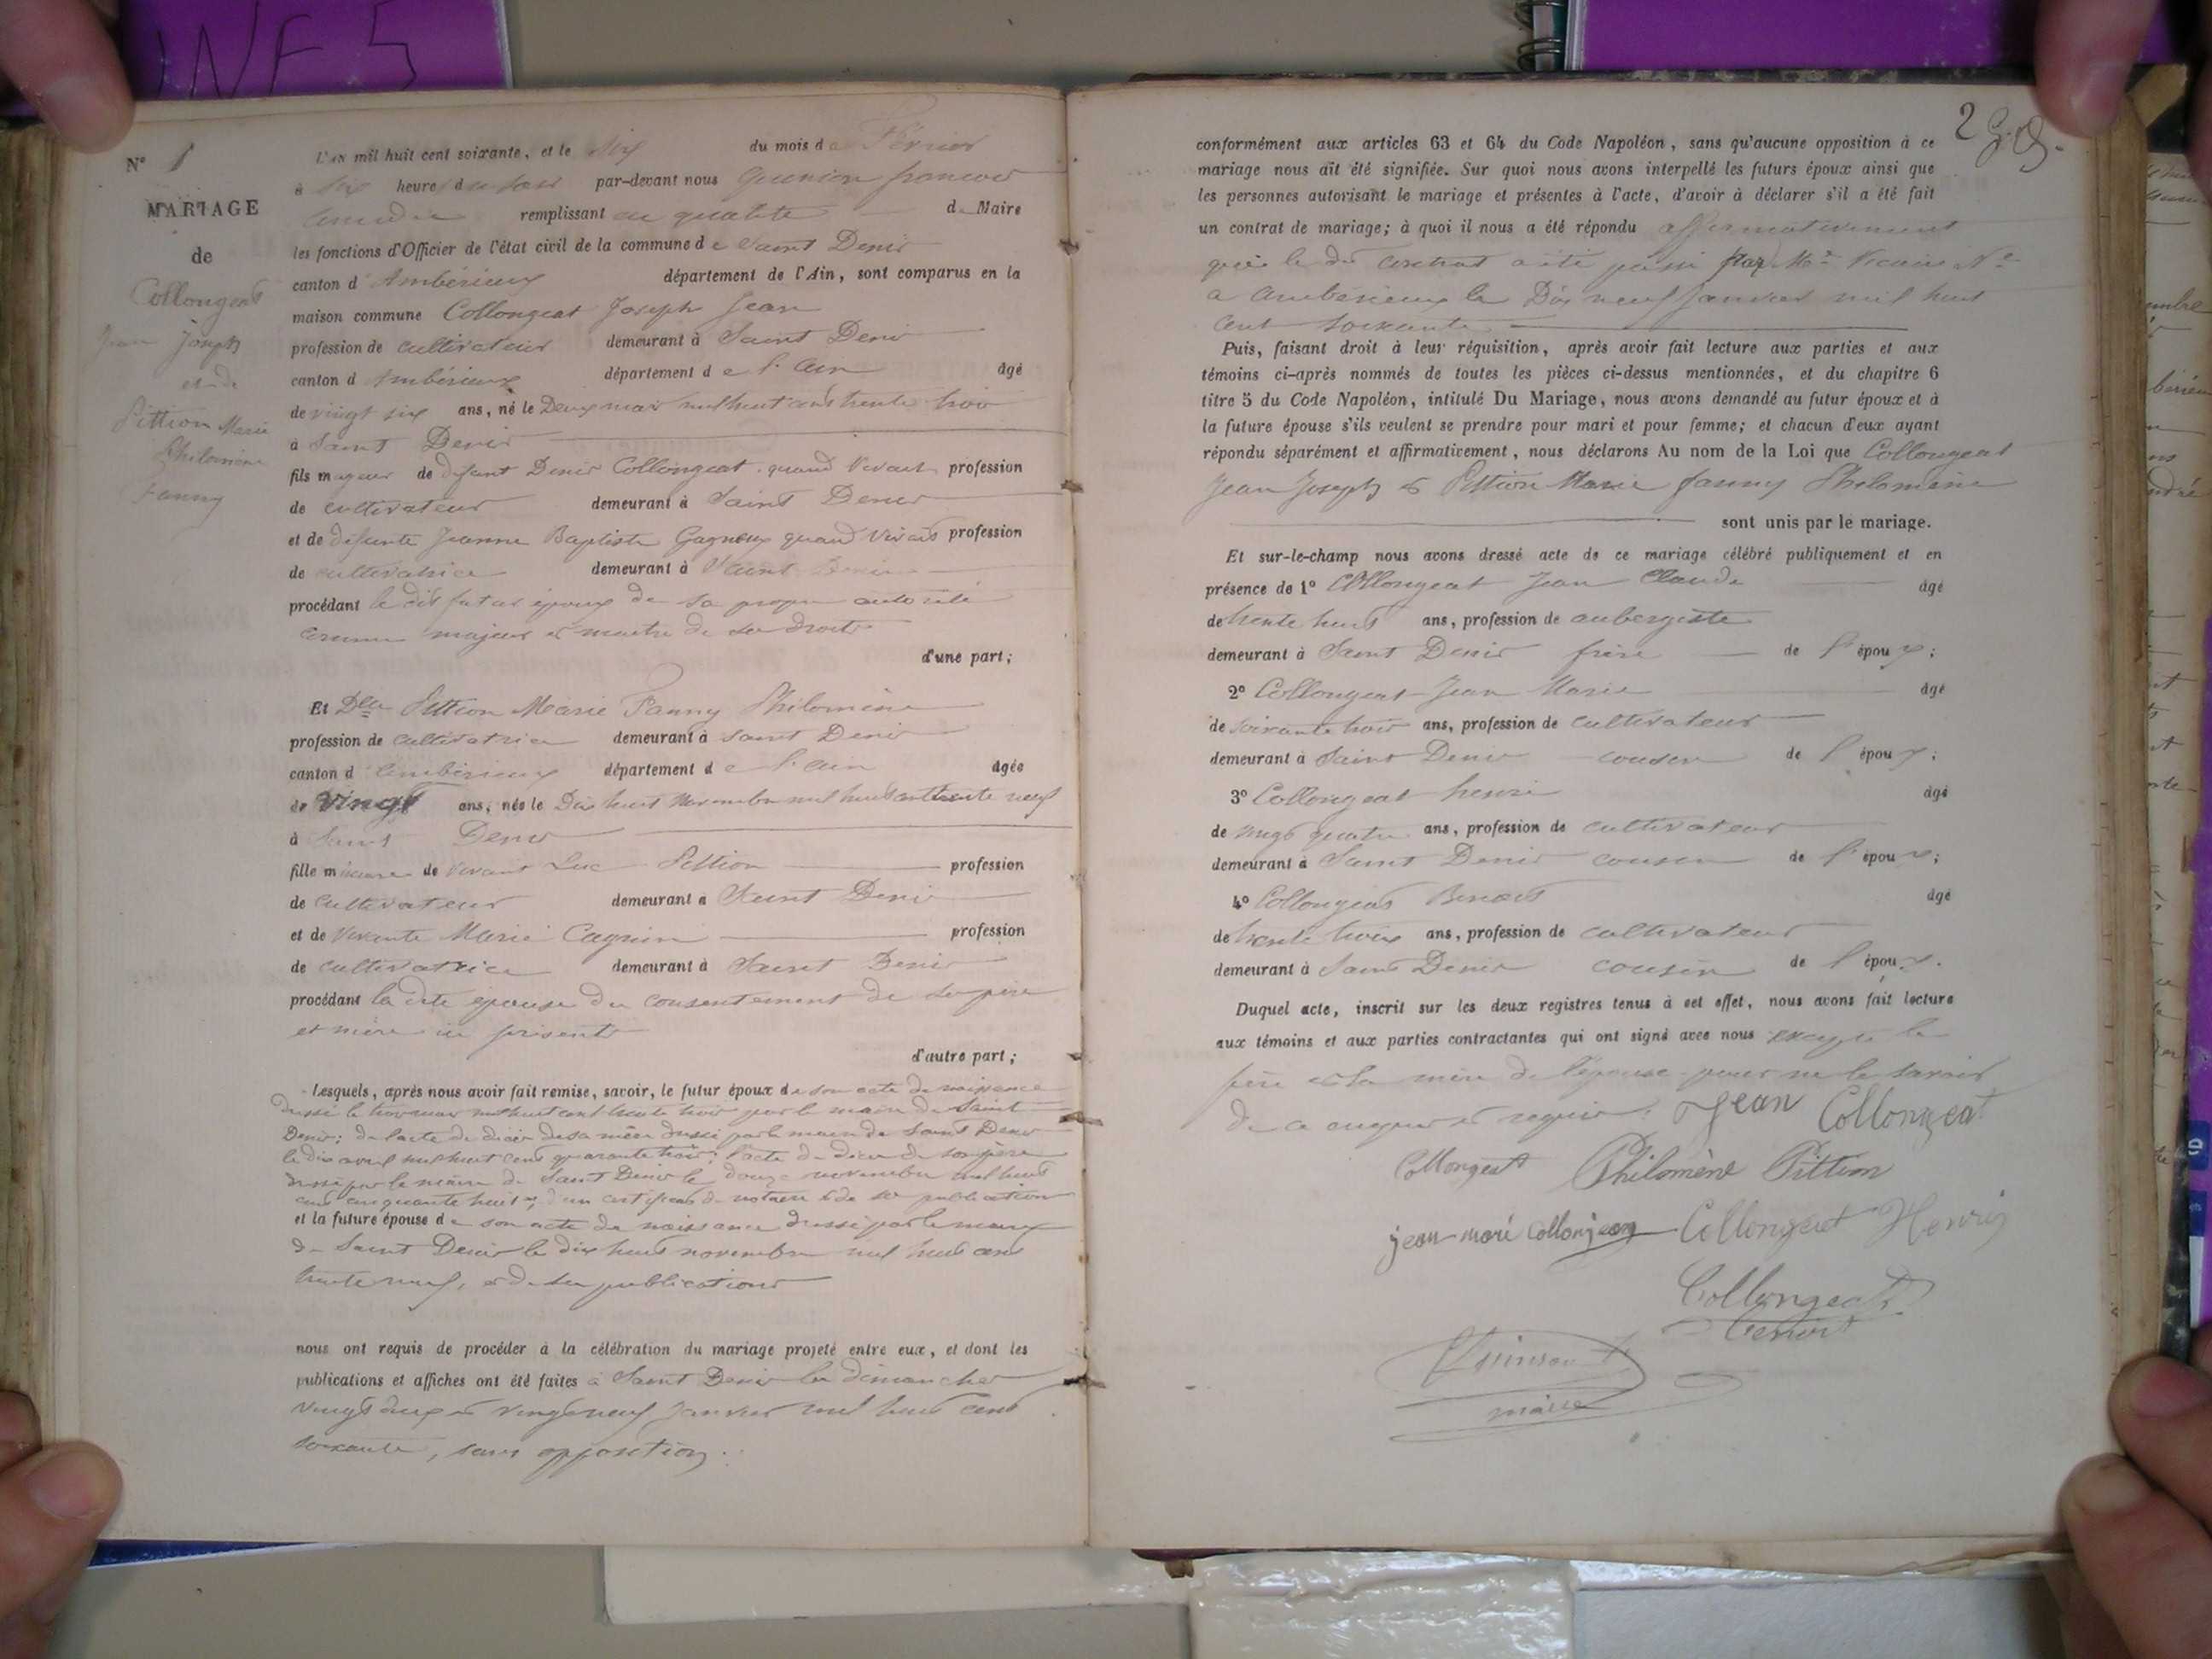 INF 5
N° 1
MARIAGE
de
Collongeat
Jean Joseph
et de
Pittion Marie
Philomène
Fanny
L'an mil huit cent soixante, et le six du mois de Février
à six heures du soir par-devant nous François
remplissant en qualité de Maire
les fonctions d'Officier de l'état civil de la commune de Saint Denis
canton d'Ambérieux département de l'Ain, sont comparus en la
maison commune Collongeat Joseph Jean
profession de cultivateur demeurant à Saint Denis
canton d'Ambérieux département de l'Ain âgé
de vingt six ans, né le Deux mars mil huit cent trente trois
à Saint Denis
fils majeur de défunt Denis Collongeat quand vivait profession
de cultivateur demeurant à Saint Denis
et de défunte Jeanne Baptiste Gagneux quand vivait profession
de cultivatrice demeurant à Saint Denis
procédant le dit futur époux de sa propre autorité
comme majeur et maître de ses droits
d'une part;
Et Dlle Pittion Marie Fanny Philomène
profession de cultivatrice demeurant à Saint Denis
canton d'Ambérieux département de l'Ain âgée
de vingt ans, née le Dix huit novembre mil huit cent trente neuf
à Saint Denis
fille mineure de vivant Luc Pittion profession
de cultivateur demeurant à Saint Denis
et de vivante Marie profession
de cultivatrice demeurant à Saint Denis
procédant la dite épouse du consentement de ses père
et mère ici présents
d'autre part;
Lesquels, après nous avoir fait remise, savoir, le futur époux de son acte de naissance
dressé le trois mars mil huit cent trente trois par le maire de Saint
Denis; de l'acte de décès de sa mère dressé par le maire de Saint Denis
le dix avril mil huit cent quarante trois; l'acte de décès de son père
dressé par le maire de Saint Denis le douze novembre mil huit
cent cinquante huit; d'un certificat de notaire et de ses publications
et la future épouse de son acte de naissance dressé par le maire
de Saint Denis le dix huit novembre mil huit cent
trente neuf, et de ses publications
nous ont requis de procéder à la célébration du mariage projeté entre eux, et dont les
publications et affiches ont été faites à Saint Denis les dimanches
vingt deux et vingt neuf janvier mil huit cent
soixante, sans opposition.
2
conformément aux articles 63 et 64 du Code Napoléon, sans qu'aucune opposition à ce
mariage nous ait été signifiée. Sur quoi nous avons interpellé les futurs époux ainsi que
les personnes autorisant le mariage et présentes à l'acte, d'avoir à déclarer s'il a été fait
un contrat de mariage; à quoi il nous a été répondu affirmativement
que le dit contrat a été passé par Me Vicaire Nre
à Ambérieux le Dix neuf janvier mil huit
cent soixante
Puis, faisant droit à leur réquisition, après avoir fait lecture aux parties et aux
témoins ci-après nommés de toutes les pièces ci-dessus mentionnées, et du chapitre 6
titre 5 du Code Napoléon, intitulé Du Mariage, nous avons demandé au futur époux et à
la future épouse s'ils veulent se prendre pour mari et pour femme; et chacun d'eux ayant
répondu séparément et affirmativement, nous déclarons Au nom de la Loi que Collongeat
Jean Joseph et Pittion Marie Fanny Philomène
sont unis par le mariage.
Et sur-le-champ nous avons dressé acte de ce mariage célébré publiquement et en
présence de 1° Collongeat Jean Claude âgé
de trente huit ans, profession de aubergiste
demeurant à Saint Denis frère de l'époux;
2° Collongeat Jean Marie âgé
de soixante trois ans, profession de cultivateur
demeurant à Saint Denis cousin de l'époux;
3° Collongeat henri âgé
de vingt quatre ans, profession de cultivateur
demeurant à Saint Denis cousin de l'époux;
4° Collongeat Benoit âgé
de trente trois ans, profession de cultivateur
demeurant à Saint Denis cousin de l'époux.
Duquel acte, inscrit sur les deux registres tenus à cet effet, nous avons fait lecture
aux témoins et aux parties contractantes qui ont signé avec nous excepté le
père et la mère de l'épouse pour ne le savoir
de ce enquis et requis. Jean Collongeat
Collongeat Philomène Pittion
jean mari collonjeat Collongeat Henri
Collongeat
Benoit
maire